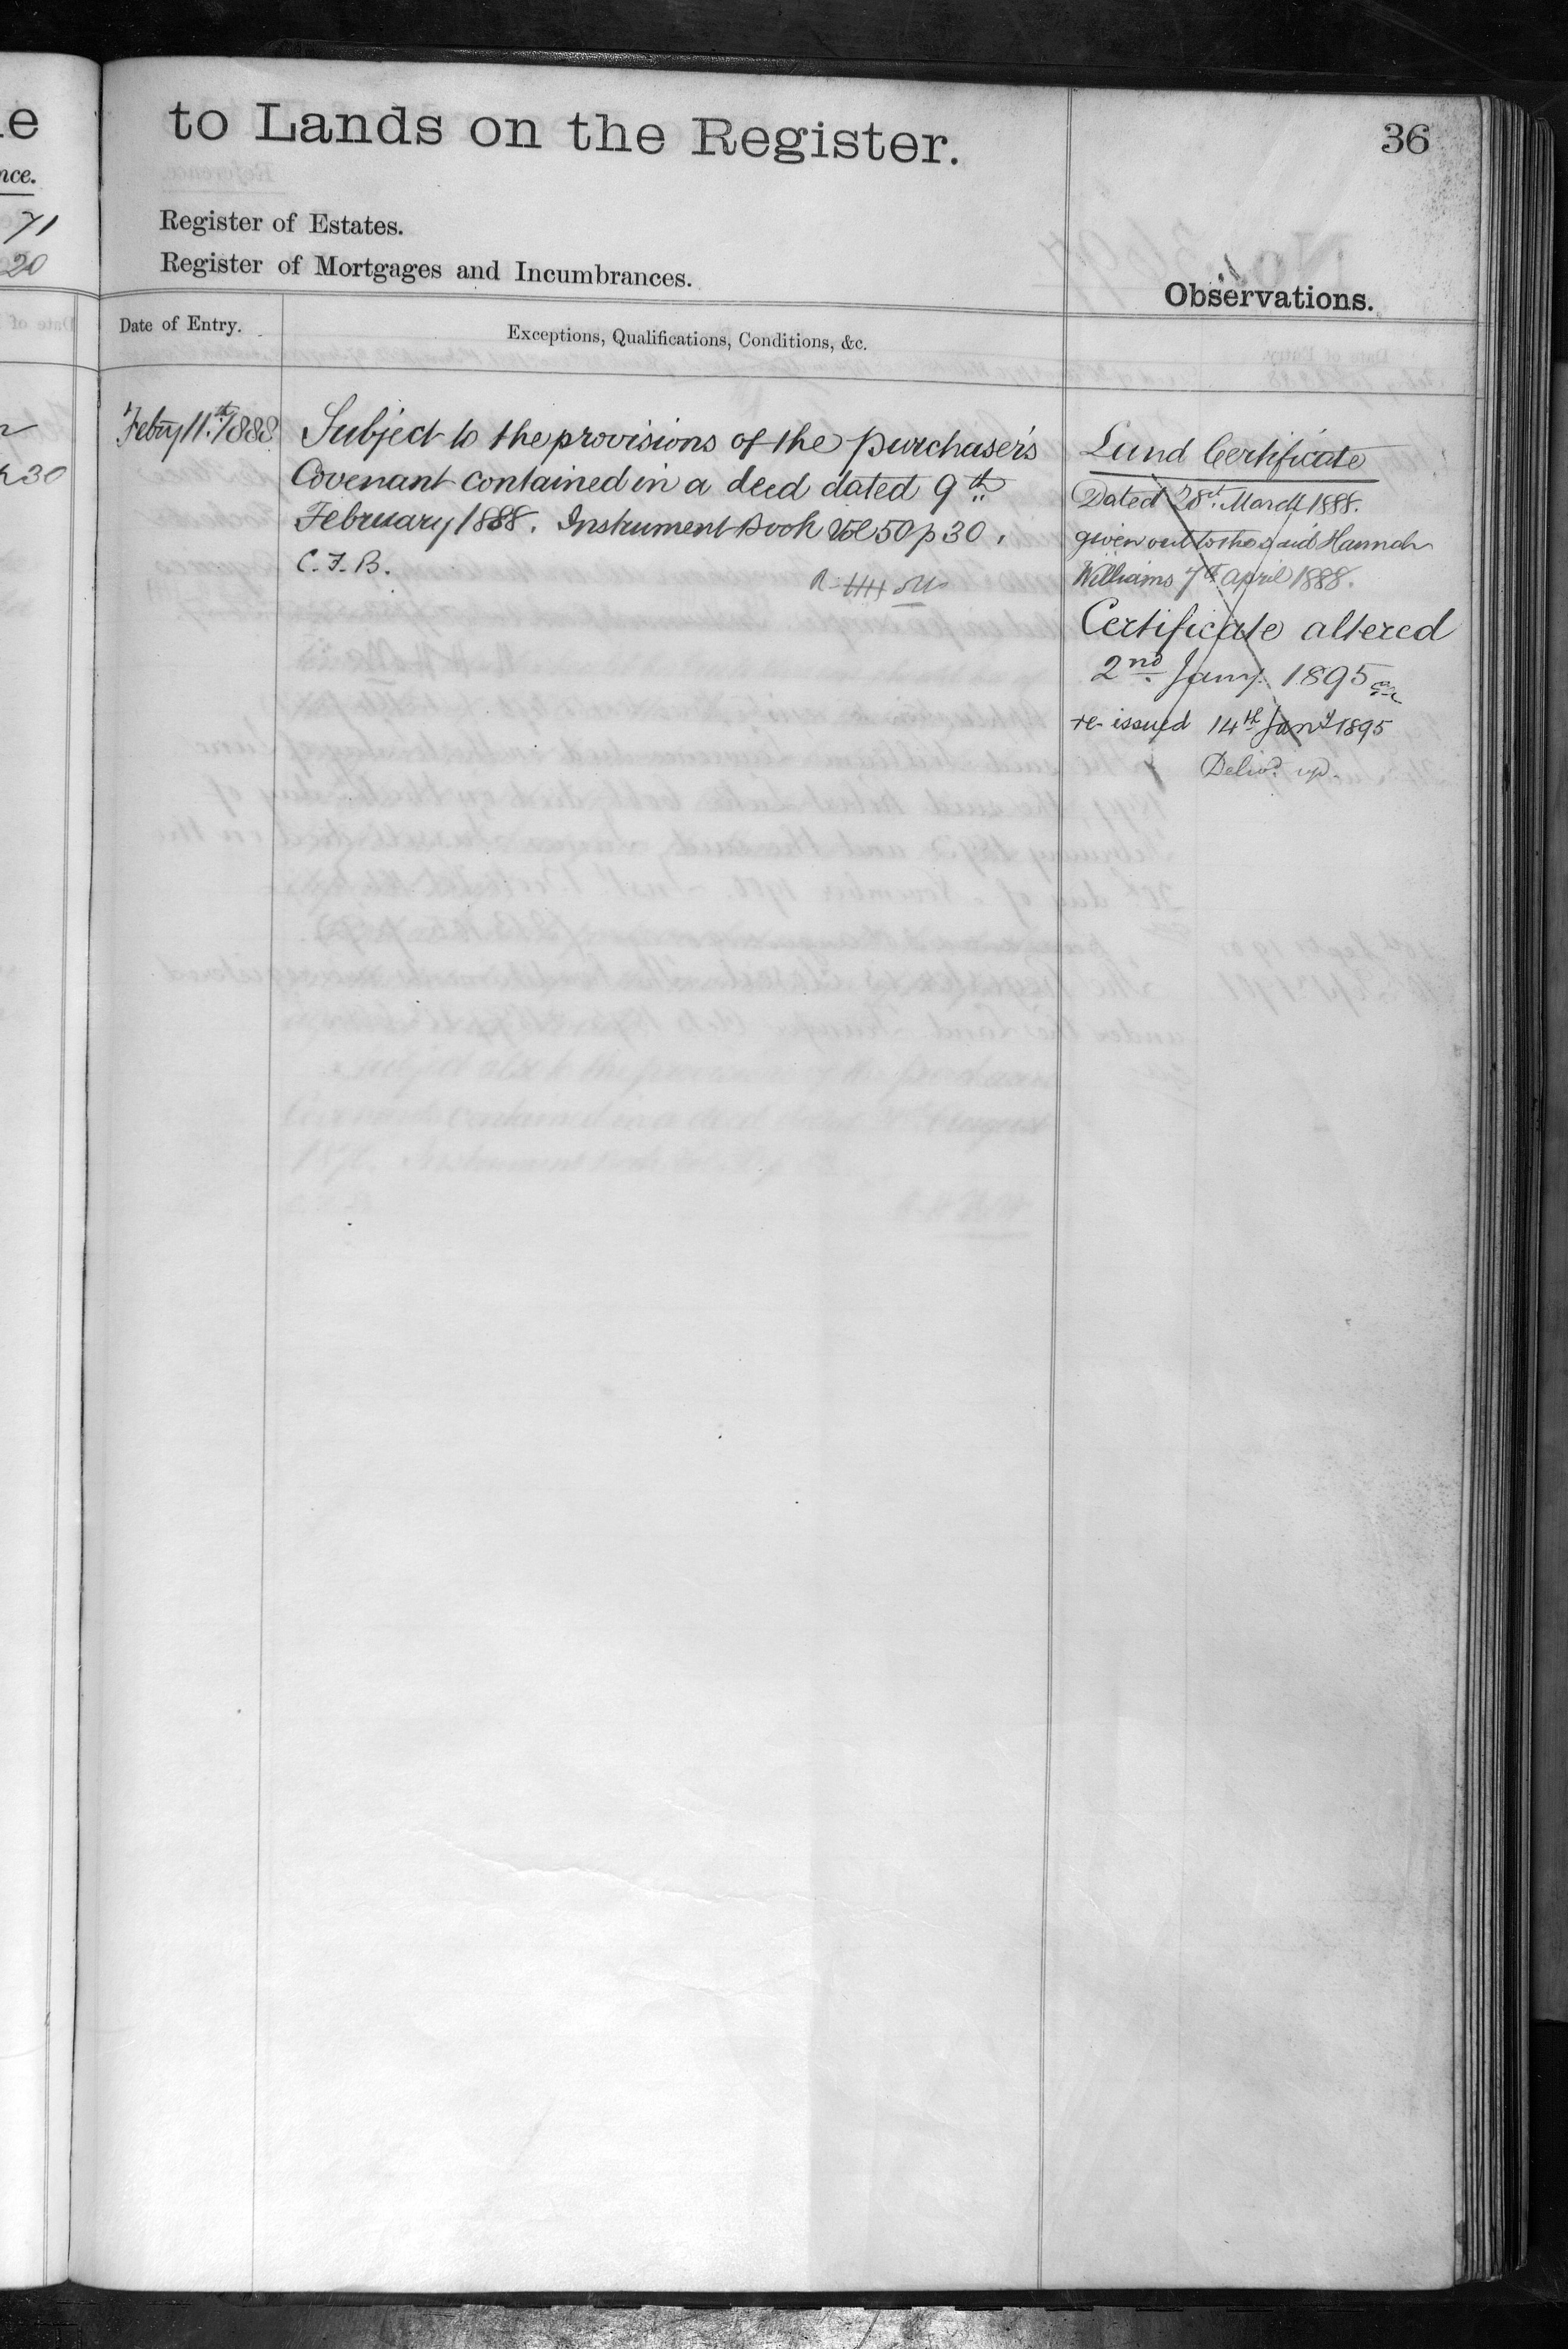 to Lands on the Register.
36
Register of Estates.
Register of Mortgages and Incumbrances.
Observations.
Date of Entry.
Exceptions, Qualifications, Conditions, &c.
nce.
71
20
30
Febry 11th 1888
Subject to the provisions of the purchaser's
Covenant contained in a deed dated 9th
February 1888. Instrument Book Vol 50 p 30.
C.F.B.
Land Certificate
Dated 28th March 1888.
given out to the said Hannah
Williams 7th April 1888.
Certificate altered
2nd Jany. 1895
re-issued 14th Jany 1895
Delivd. up.